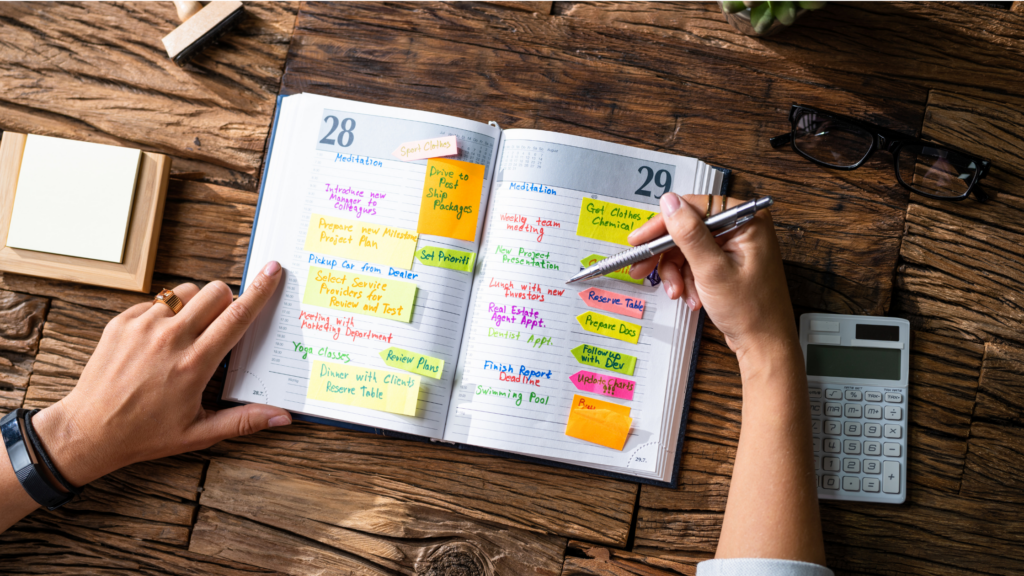 28
Sport Clothes
Meditation
Drive to
Post
Ship
Packages
Introduce new
Manager to
Colleagues
Prepare new Milestone
Project Plan
Set Priority
Pickup Car from Dealer
Select Service
Providers for
Review and Test
Meeting with
Marketing Department
Yoga Classes
Review Plans
Dinner with Clients
Reserve Table
29
Meditation
Get Clothes
Chemical
Weekly team
meeting
New Project
Presentation
Lunch with new
Investors
Reserve Table
Real Estate
Agent Appt.
Prepare Docs
Dentist Appt.
Followup
with Dev
Finish Report
Deadline
Update Charts
!!!
Swimming Pool
Buy